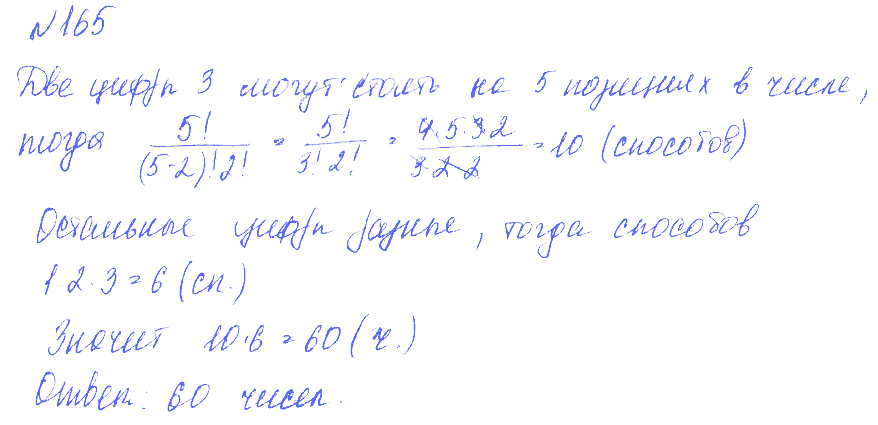 №165
Две цифры 3 могут стоять на 5 позициях в числе,
тогда 5!/((5-2)!2!) = 5!/(3!2!) = (4·5·3·2)/(3·2·2) = 10 (способов)
Остальные цифры разные, тогда способов
1·2·3=6 (сп.)
Значит 10·6=60 (ч.)
Ответ: 60 чисел.